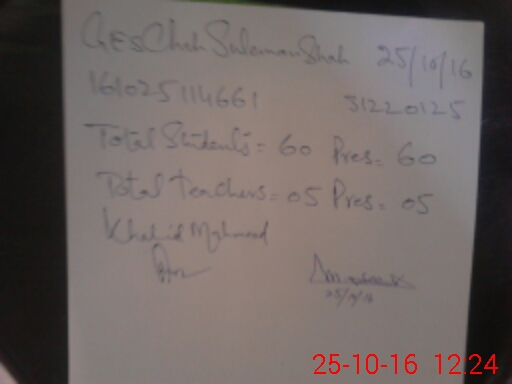 GES Chah Suleman Shah 25/10/16
161025114661 31220125
Total Students = 60 Pres = 60
Total Teachers = 05 Pres = 05
Khalid Mahmood
25/10/16
25-10-16 12:24